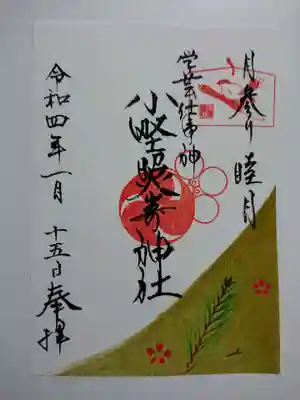 月参り 睦月
学芸仕事神
小野照崎神社
令和四年一月十五日奉拝